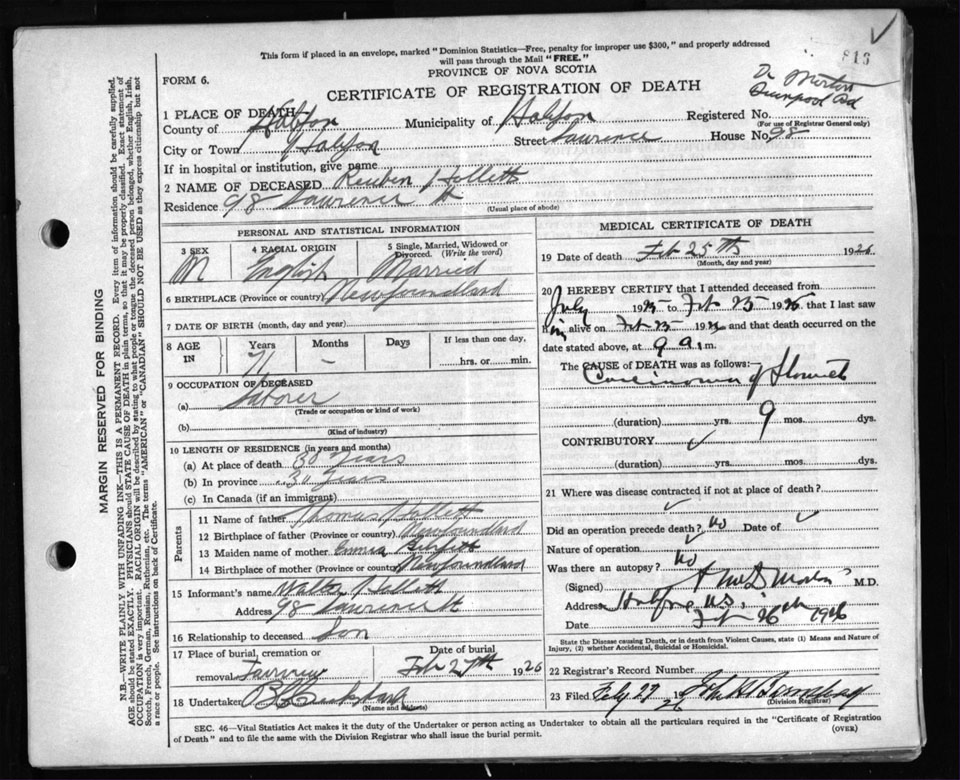 This form if placed in an envelope, marked "Dominion Statistics—Free, penalty for improper use $300," and properly addressed
will pass through the Mail "FREE."
PROVINCE OF NOVA SCOTIA
813
FORM 6.
CERTIFICATE OF REGISTRATION OF DEATH
Dr Morton
Quinpool Rd
1 PLACE OF DEATH
County of Halifax Municipality of Halifax Registered No.
(For use of Registrar General only)
City or Town Halifax Street Lawrence House No. 98
If in hospital or institution, give name
2 NAME OF DECEASED Reuben Hollett
Residence 98 Lawrence St
(Usual place of abode)
PERSONAL AND STATISTICAL INFORMATION
3 SEX 4 RACIAL ORIGIN 5 Single, Married, Widowed or Divorced. (Write the word)
M English Married
6 BIRTHPLACE (Province or country) Newfoundland
7 DATE OF BIRTH (month, day and year)
8 AGE IN Years Months Days If less than one day,
71 – hrs. or min.
9 OCCUPATION OF DECEASED
(a) Laborer
(Trade or occupation or kind of work)
(b)
(Kind of industry)
10 LENGTH OF RESIDENCE (in years and months)
(a) At place of death 30 Years
(b) In province 30 Years
(c) In Canada (if an immigrant)
Parents
11 Name of father Thomas Hollett
12 Birthplace of father (Province or country) Newfoundland
13 Maiden name of mother Emma
14 Birthplace of mother (Province or country) Newfoundland
15 Informant's name Walter Hollett
Address 98 Lawrence St
16 Relationship to deceased Son
17 Place of burial, cremation or removal Fairview
Date of burial Feb 27th 1926
18 Undertaker
(Name and address)
MEDICAL CERTIFICATE OF DEATH
19 Date of death Feb 25th 1926
(Month, day and year)
20 I HEREBY CERTIFY that I attended deceased from
July 1925 to Feb 25 1926 that I last saw
him alive on Feb 25 1926 and that death occurred on
date stated above, at 9 a.m.
The CAUSE OF DEATH was as follows:
Carcinoma of Stomach
(duration) yrs. 9 mos. dys.
CONTRIBUTORY
(duration) yrs. mos. dys.
21 Where was disease contracted if not at place of death?
Did an operation precede death? No Date of
Nature of operation
Was there an autopsy? No
(Signed) Morton M.D.
Address Halifax N.S.
Date Feb 26th 1926
State the Disease causing Death, or in death from Violent Causes, state (1) Means and Nature of
Injury, (2) whether Accidental, Suicidal or Homicidal.
22 Registrar's Record Number
23 Filed Feby 27 1926
(Division Registrar)
SEC. 46—Vital Statistics Act makes it the duty of the Undertaker or person acting as Undertaker to obtain all the particulars required in the "Certificate of Registration
of Death" and to file the same with the Division Registrar who shall issue the burial permit.
(OVER)
MARGIN RESERVED FOR BINDING
N.B.—WRITE PLAINLY WITH UNFADING INK—THIS IS A PERMANENT RECORD. Every item of information should be carefully supplied.
AGE should be stated EXACTLY. PHYSICIANS should STATE CAUSE OF DEATH in plain terms, so that it may be properly classified. Exact statement of
OCCUPATION is very important. RACIAL ORIGIN will be described by stating to what people or tongue the deceased person belonged, whether English, Irish,
Scotch, French, German, Russian, Ruthenian, etc. The terms "AMERICAN" or "CANADIAN" SHOULD NOT BE USED as they express citizenship but not
a race or people. See instructions on back of Certificate.